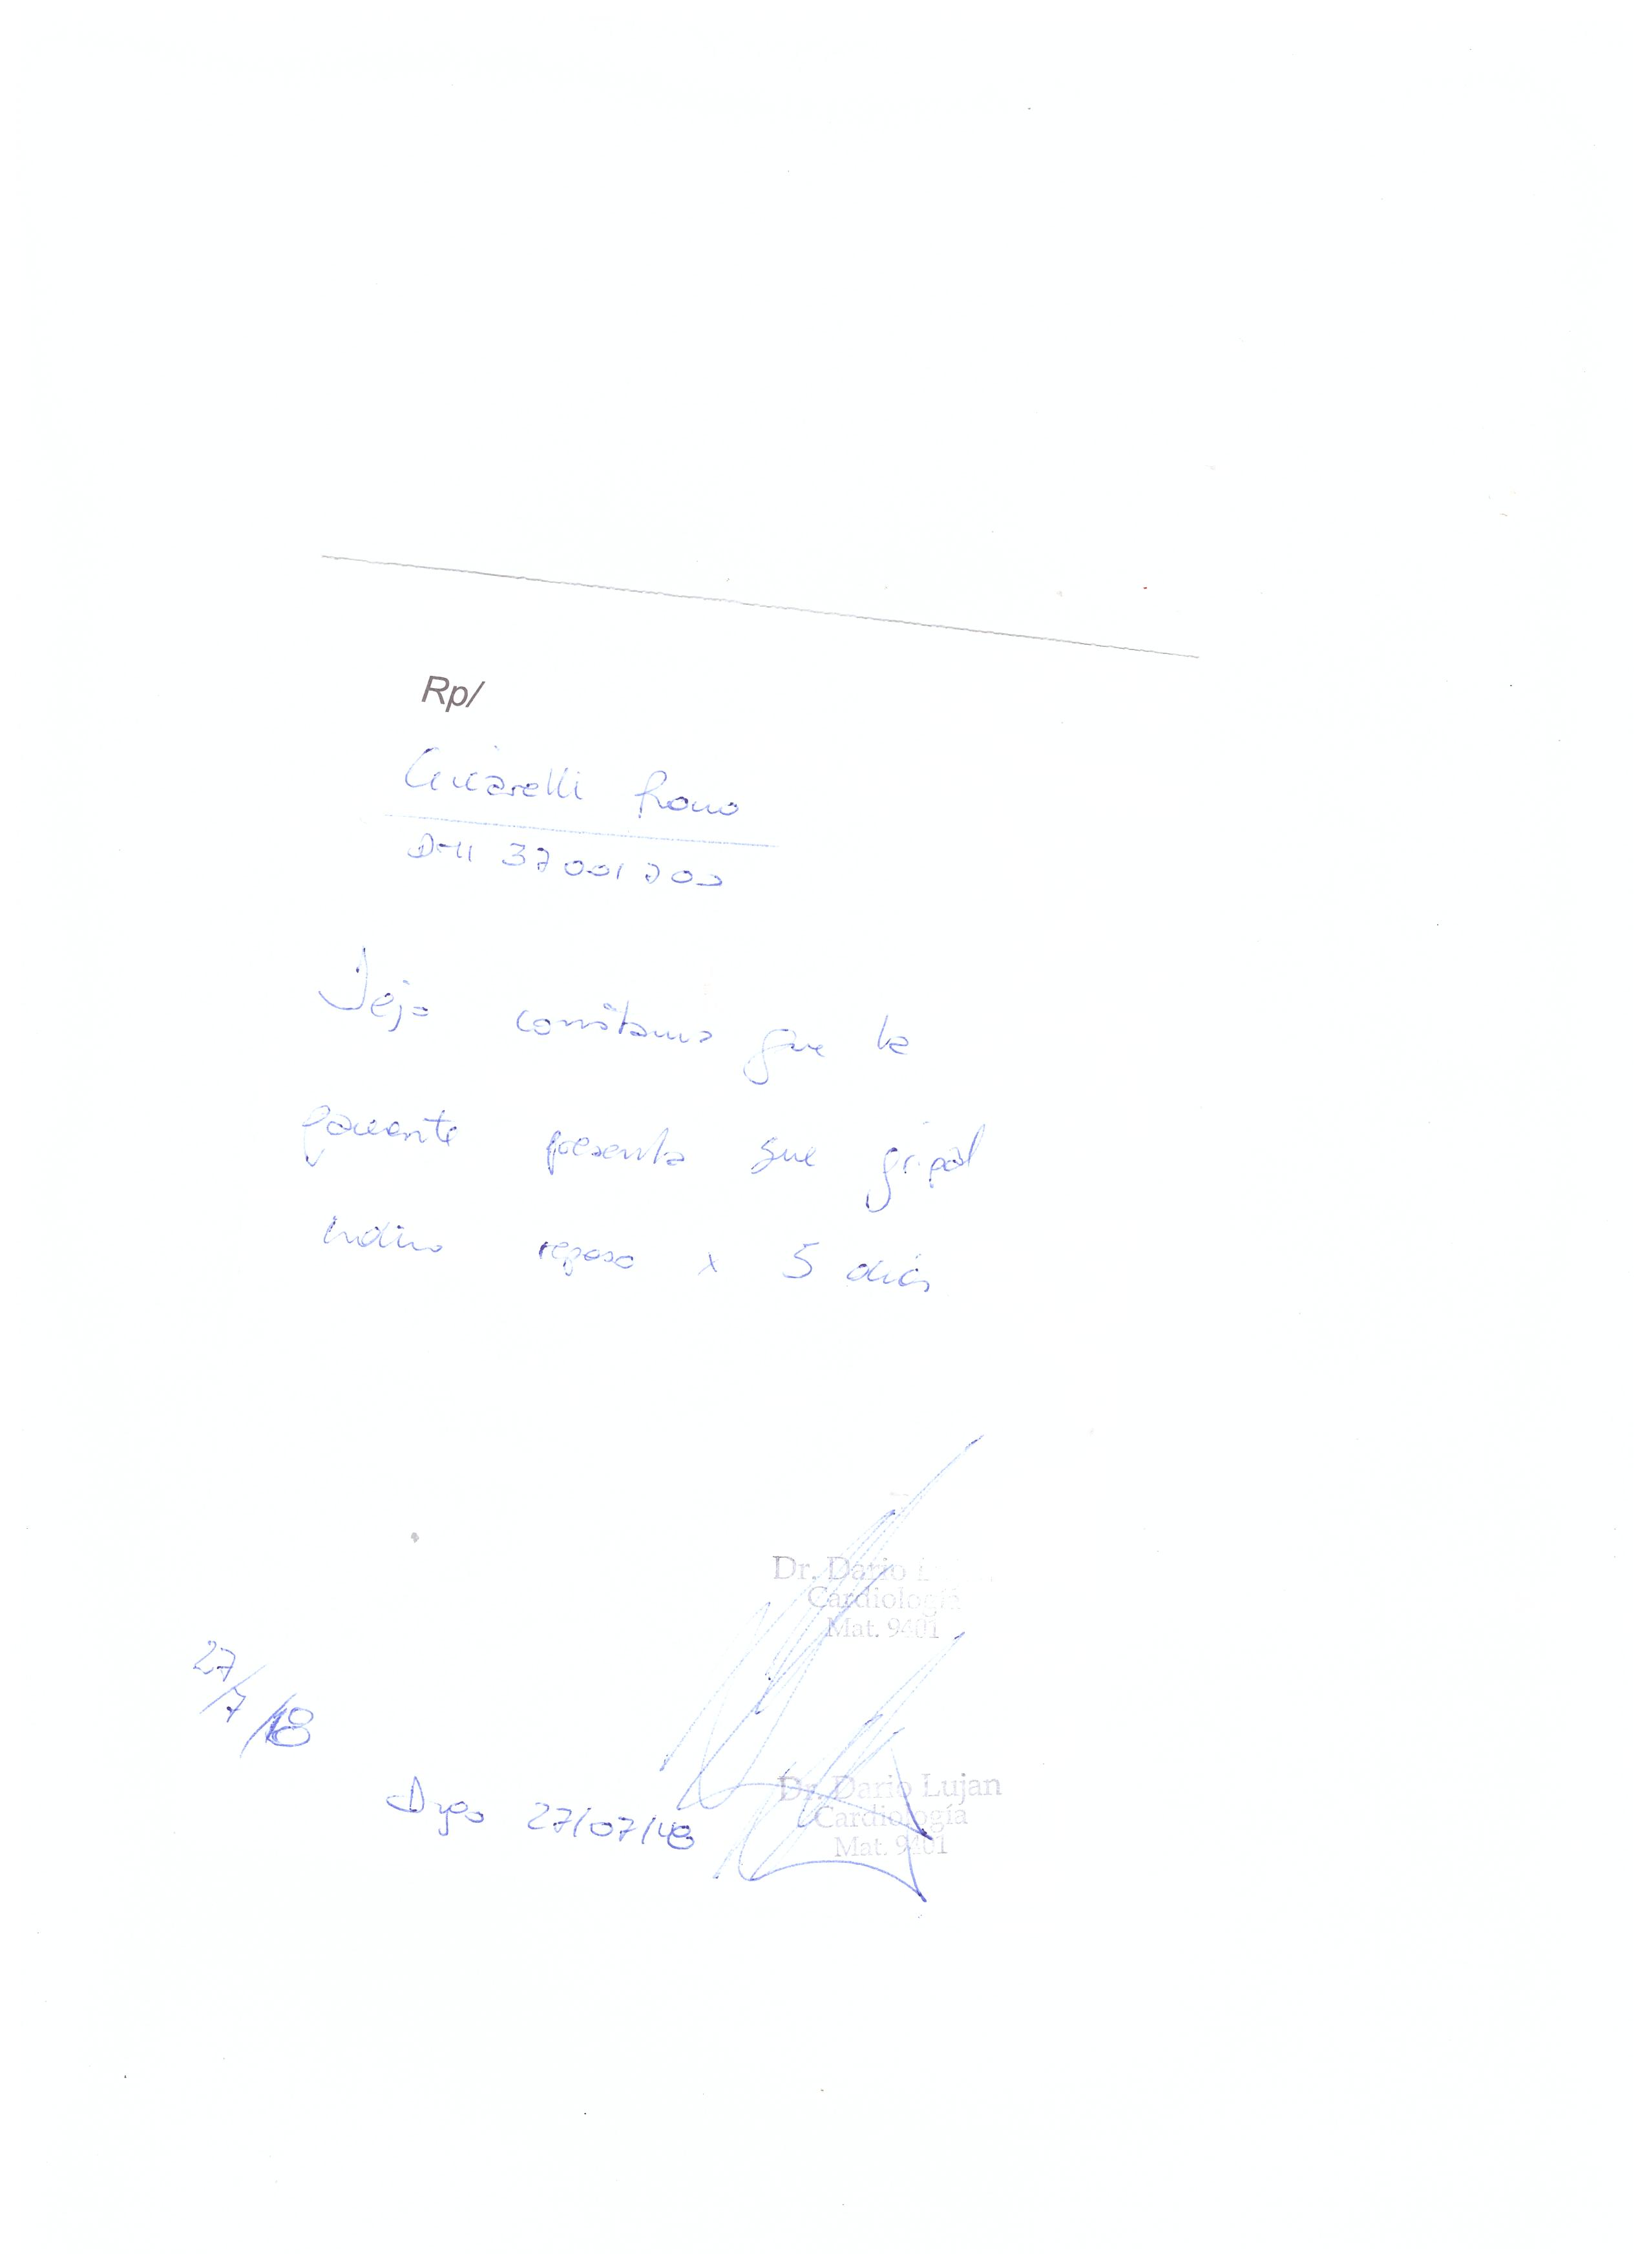 Rp/
DNI 37001702
Dejo constancia que la
paciente presenta sme gripal
indico reposo x 5 días
Dr. Dario L
Cardiología
Mat. 9401
27/7/18
Dr. Dario Lujan
Cardiología
Mat. 9401
27/07/18